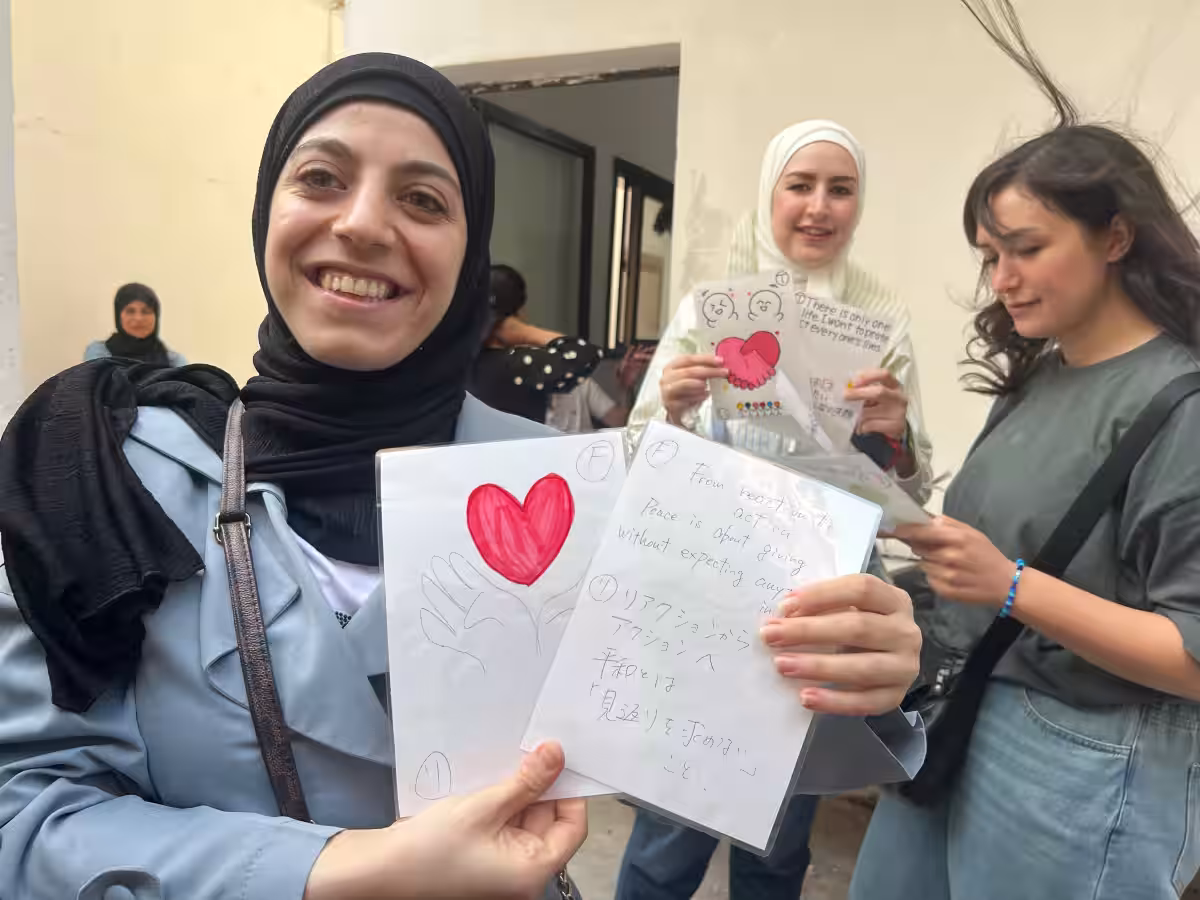 F
リ
F
From reaction to
action
Peace is about giving
without expecting
リ リアクションから
アクションへ
平和とは
「見返りを求めない」
こと.
There is only one
life. I want to protect
everyone's lives.